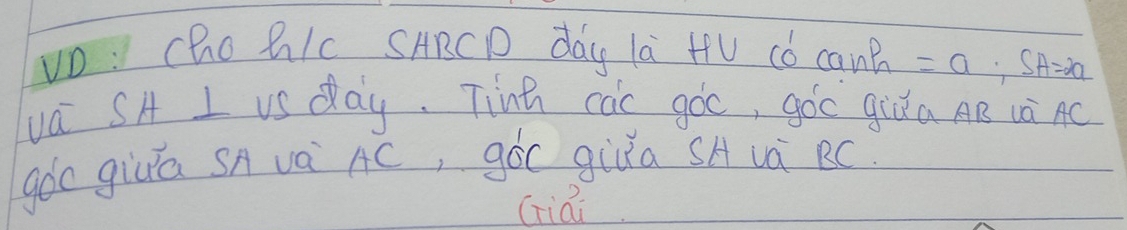 VD: Cho h/c SABCD đáy là HV có cạnh = a ; SA=2a
và SA ⊥ vs đáy. Tính các góc, góc giữa AB và AC
góc giữa SA và AC, góc giữa SA và BC.
Giải